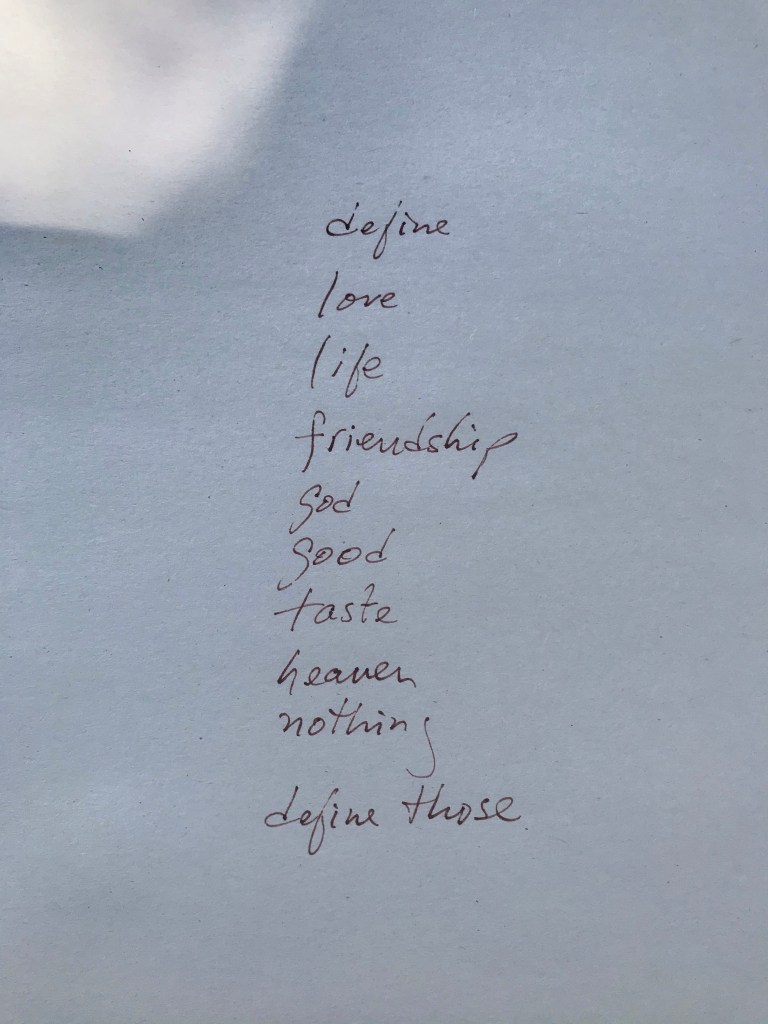 define
love
life
friendship
god
good
taste
heaven
nothing
define those